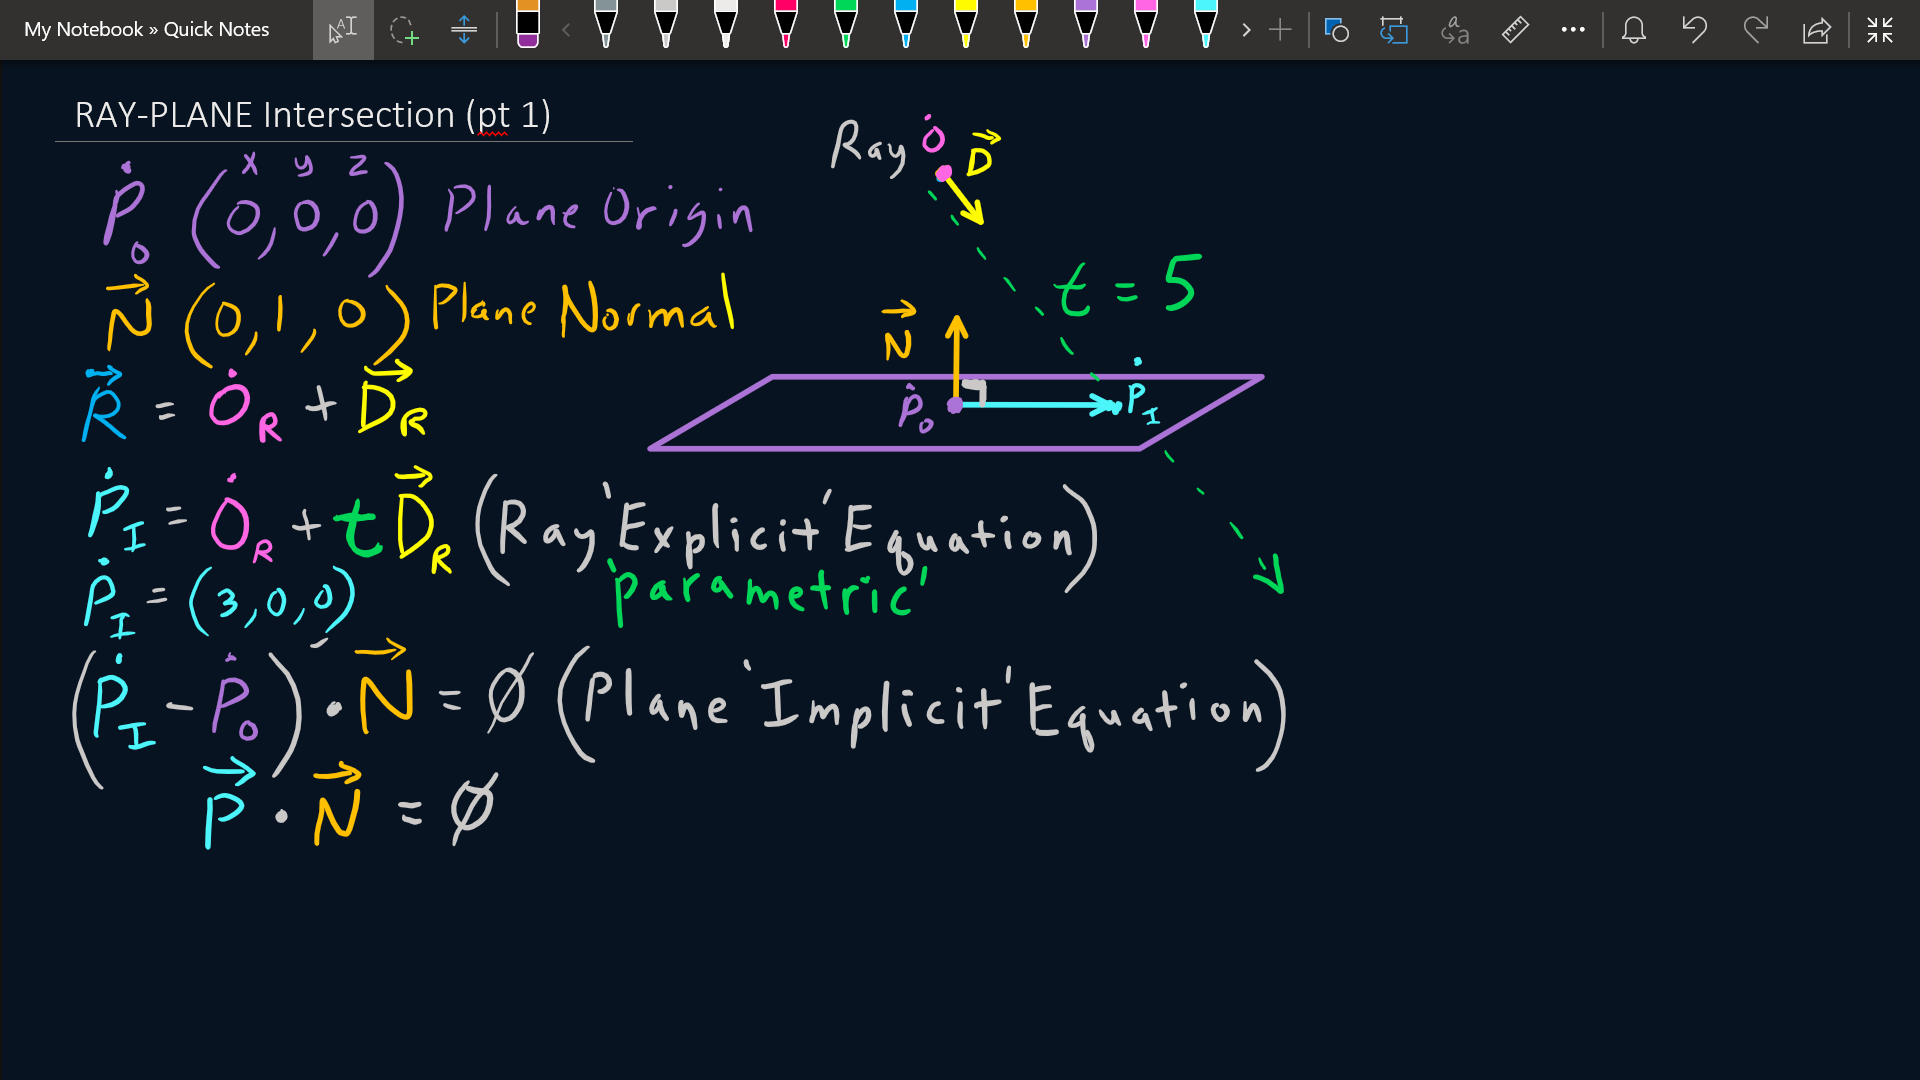 My Notebook » Quick Notes
RAY-PLANE Intersection (pt 1)
x y z
Ṗ₀ (0,0,0) Plane Origin
N⃗ (0,1,0) Plane Normal
R⃗ = Ȯ_R + D⃗_R
Ṗ_I = Ȯ_R + t D⃗_R (Ray 'Explicit' Equation)
'parametric'
Ṗ_I = (3,0,0)
(Ṗ_I - Ṗ₀) · N⃗ = ∅ (Plane 'Implicit' Equation)
P⃗ · N⃗ = ∅
Ray Ȯ D⃗
t = 5
N⃗
Ṗ₀
Ṗ_I